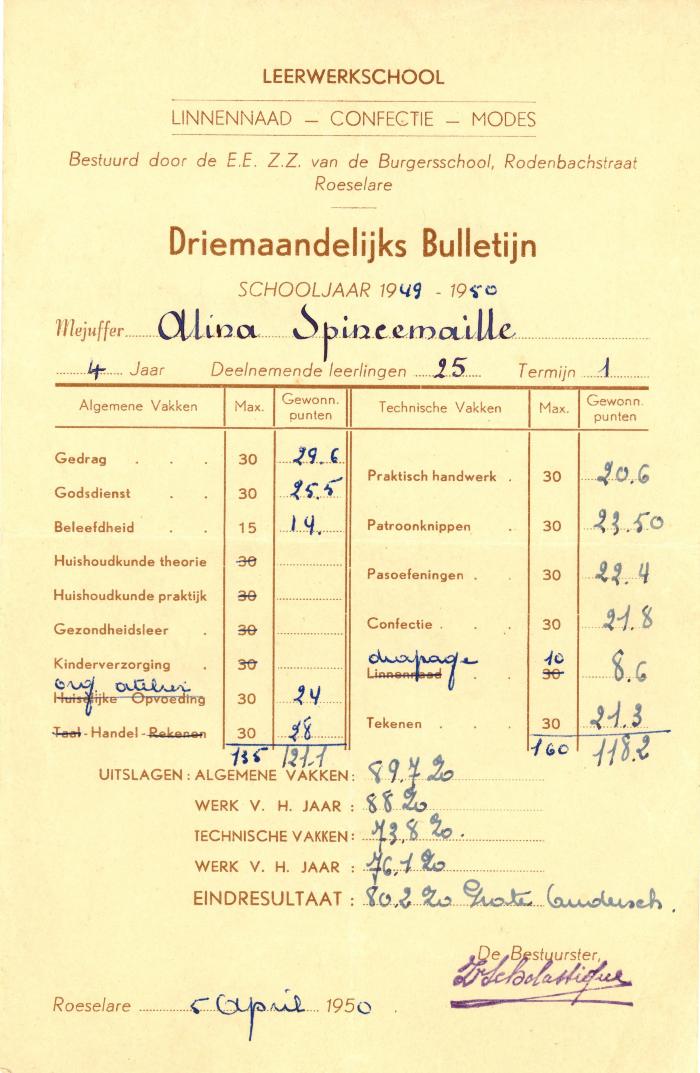 LEERWERKSCHOOL
LINNENNAAD — CONFECTIE — MODES
Bestuurd door de E.E. Z.Z. van de Burgersschool, Rodenbachstraat
Roeselare
Driemaandelijks Bulletijn
SCHOOLJAAR 1949 - 1950
Mejuffer Alina Spincemaille
4 Jaar Deelnemende leerlingen 25 Termijn 1
Algemene Vakken Max. Gewonn. punten Technische Vakken Max. Gewonn. punten
Gedrag . . . 30 29.6
Godsdienst . . 30 25.5
Beleefdheid . . 15 14.
Huishoudkunde theorie 30
Huishoudkunde praktijk 30
Gezondheidsleer . 30
Kinderverzorging . 30
org atelier
Huiselijke Opvoeding 30 24
Taal - Handel - Rekenen 30 28
135 121.1
Praktisch handwerk . 30 20.6
Patroonknippen . 30 23.50
Pasoefeningen . . 30 22.4
Confectie . . . 30 21.8
drapage 10
Linnennaad 30 8.6
Tekenen . . . 30 21.3
160 118.2
UITSLAGEN : ALGEMENE VAKKEN : 89.7 %
WERK V. H. JAAR : 88 %
TECHNISCHE VAKKEN : 73,8 %.
WERK V. H. JAAR : 76,1 %
EINDRESULTAAT : 80,2 % Grote Ondersch.
De Bestuurster,
Z Scholastique
Roeselare 5 April 1950 .